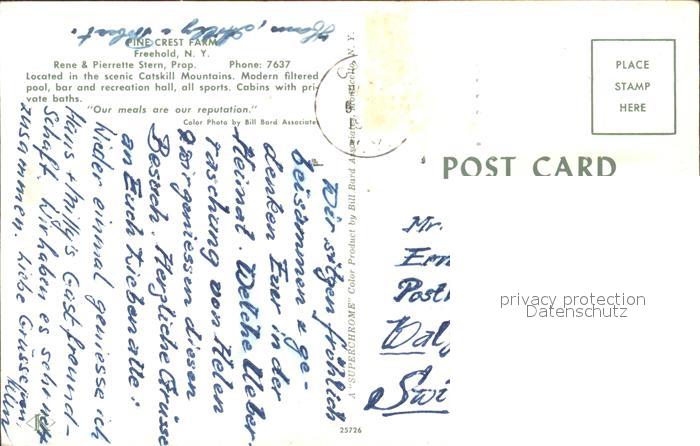 PINE CREST FARM
Freehold, N. Y.
Rene & Pierrette Stern, Prop. Phone: 7637
Located in the scenic Catskill Mountains. Modern filtered
pool, bar and recreation hall, all sports. Cabins with pri-
vate baths.
"Our meals are our reputation."
Color Photo by Bill Bard Associates
A "SUPERCHROME" Color Product by Bill Bard Associates, Monticello, N. Y.
PLACE
STAMP
HERE
POST CARD
Wir sitzen fröhlich
beisammen & ge-
denken Euer in der
Heimat. Welche Ueber-
raschung von Helen
wir geniessen diesen
Besuch. Herzliche Grüsse
an Euch Lieben alle!
Wieder einmal geniesse ich
Hans & Milly's Gastfreund-
schaft. Wir haben es sehr nett
zusammen. Liebe Grüsse von
Mr.
Ern
Post
Swi
privacy protection
Datenschutz
25726